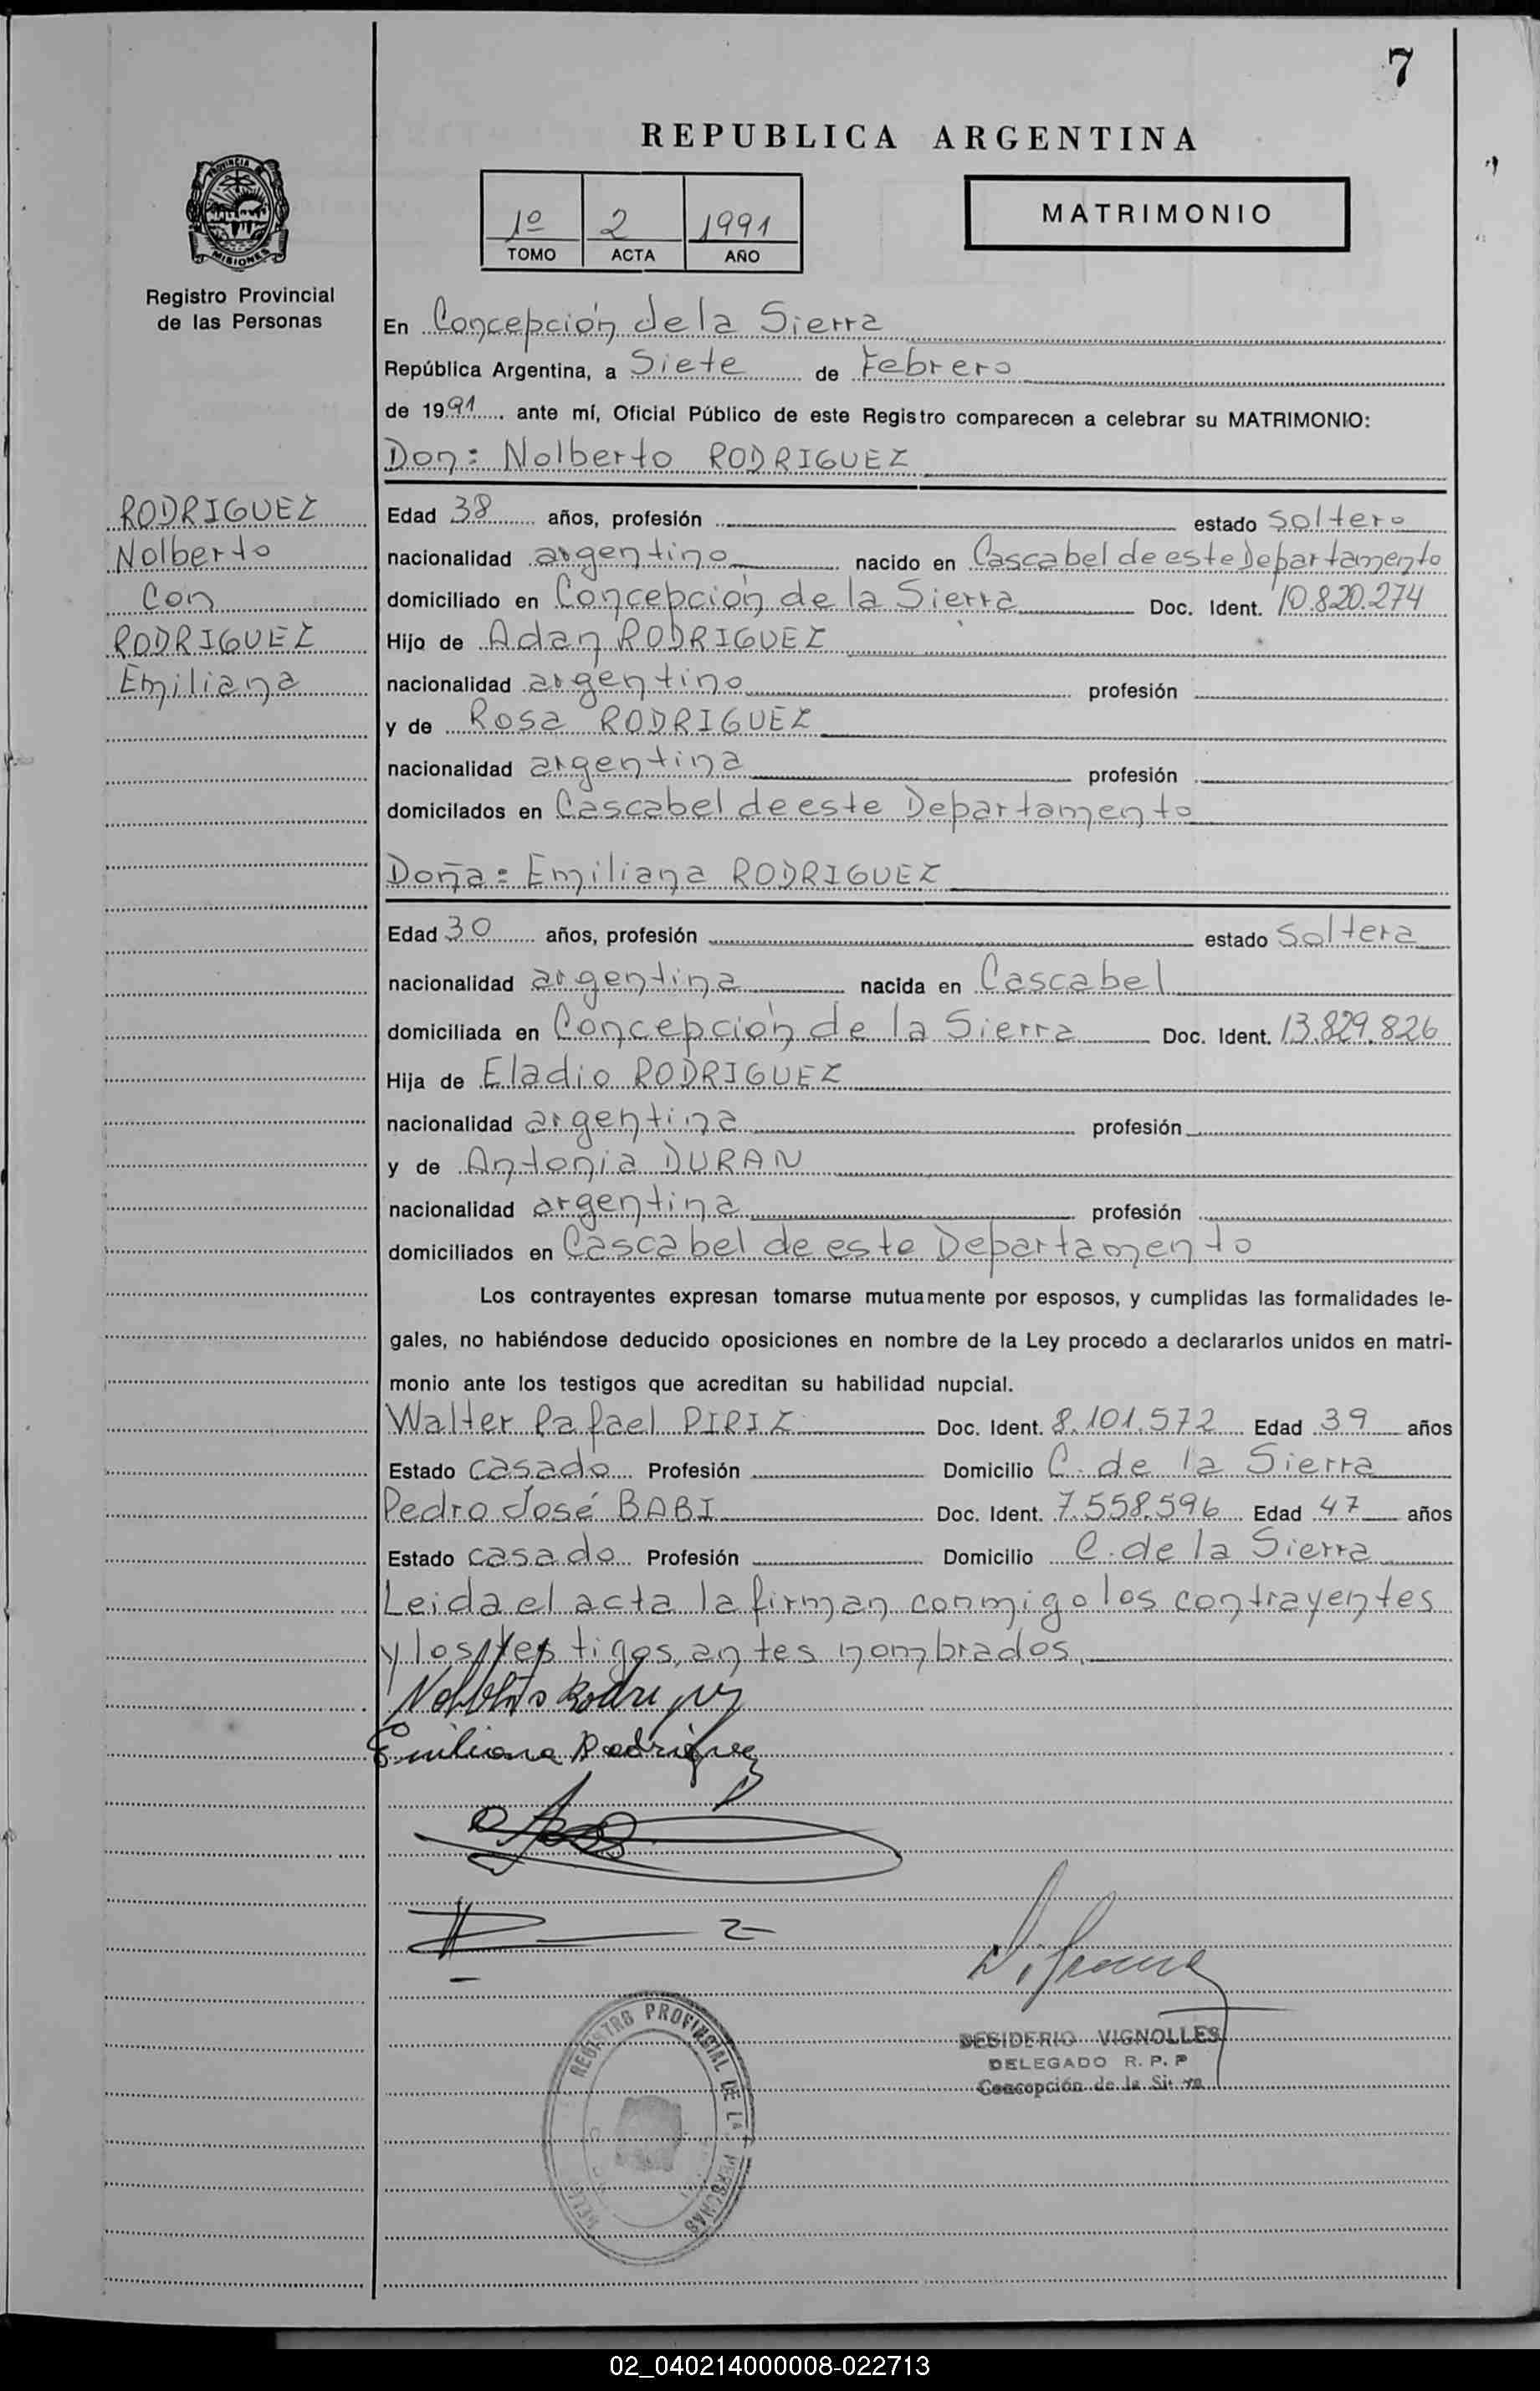 7
REPUBLICA ARGENTINA
1º 2 1991
TOMO ACTA AÑO
MATRIMONIO
PROVINCIA DE
MISIONES
Registro Provincial
de las Personas
En Concepción de la Sierra
República Argentina, a Siete de Febrero
de 1991 ante mí, Oficial Público de este Registro comparecen a celebrar su MATRIMONIO:
Don: Nolberto RODRIGUEZ
RODRIGUEZ
Nolberto
Con
RODRIGUEZ
Emiliana
Edad 38 años, profesión estado soltero
nacionalidad argentino nacido en Cascabel de este Departamento
domiciliado en Concepción de la Sierra Doc. Ident. 10.820.274
Hijo de Adan RODRIGUEZ
nacionalidad argentino profesión
y de Rosa RODRIGUEZ
nacionalidad argentina profesión
domicilados en Cascabel de este Departamento
Doña: Emiliana RODRIGUEZ
Edad 30 años, profesión estado Soltera
nacionalidad argentina nacida en Cascabel
domiciliada en Concepción de la Sierra Doc. Ident. 13.829.826
Hija de Eladio RODRIGUEZ
nacionalidad argentina profesión
y de Antonia DURAN
nacionalidad argentina profesión
domiciliados en Cascabel de este Departamento
Los contrayentes expresan tomarse mutuamente por esposos, y cumplidas las formalidades le-
gales, no habiéndose deducido oposiciones en nombre de la Ley procedo a declararlos unidos en matri-
monio ante los testigos que acreditan su habilidad nupcial.
Walter Rafael PIRIZ Doc. Ident. 8.101.572 Edad 39 años
Estado casado Profesión Domicilio C. de la Sierra
Pedro José BABI Doc. Ident. 7.558.596 Edad 47 años
Estado casado Profesión Domicilio C. de la Sierra
Leida el acta la firman conmigo los contrayentes
y los testigos, antes nombrados.
Nolberto Rodriguez
Emiliana Rodriguez
REGISTRO PROVINCIAL DE LAS PERSONAS
DESIDERIO VIGNOLLES
DELEGADO R. P. P
Concepción de la Sierra
02_040214000008-022713